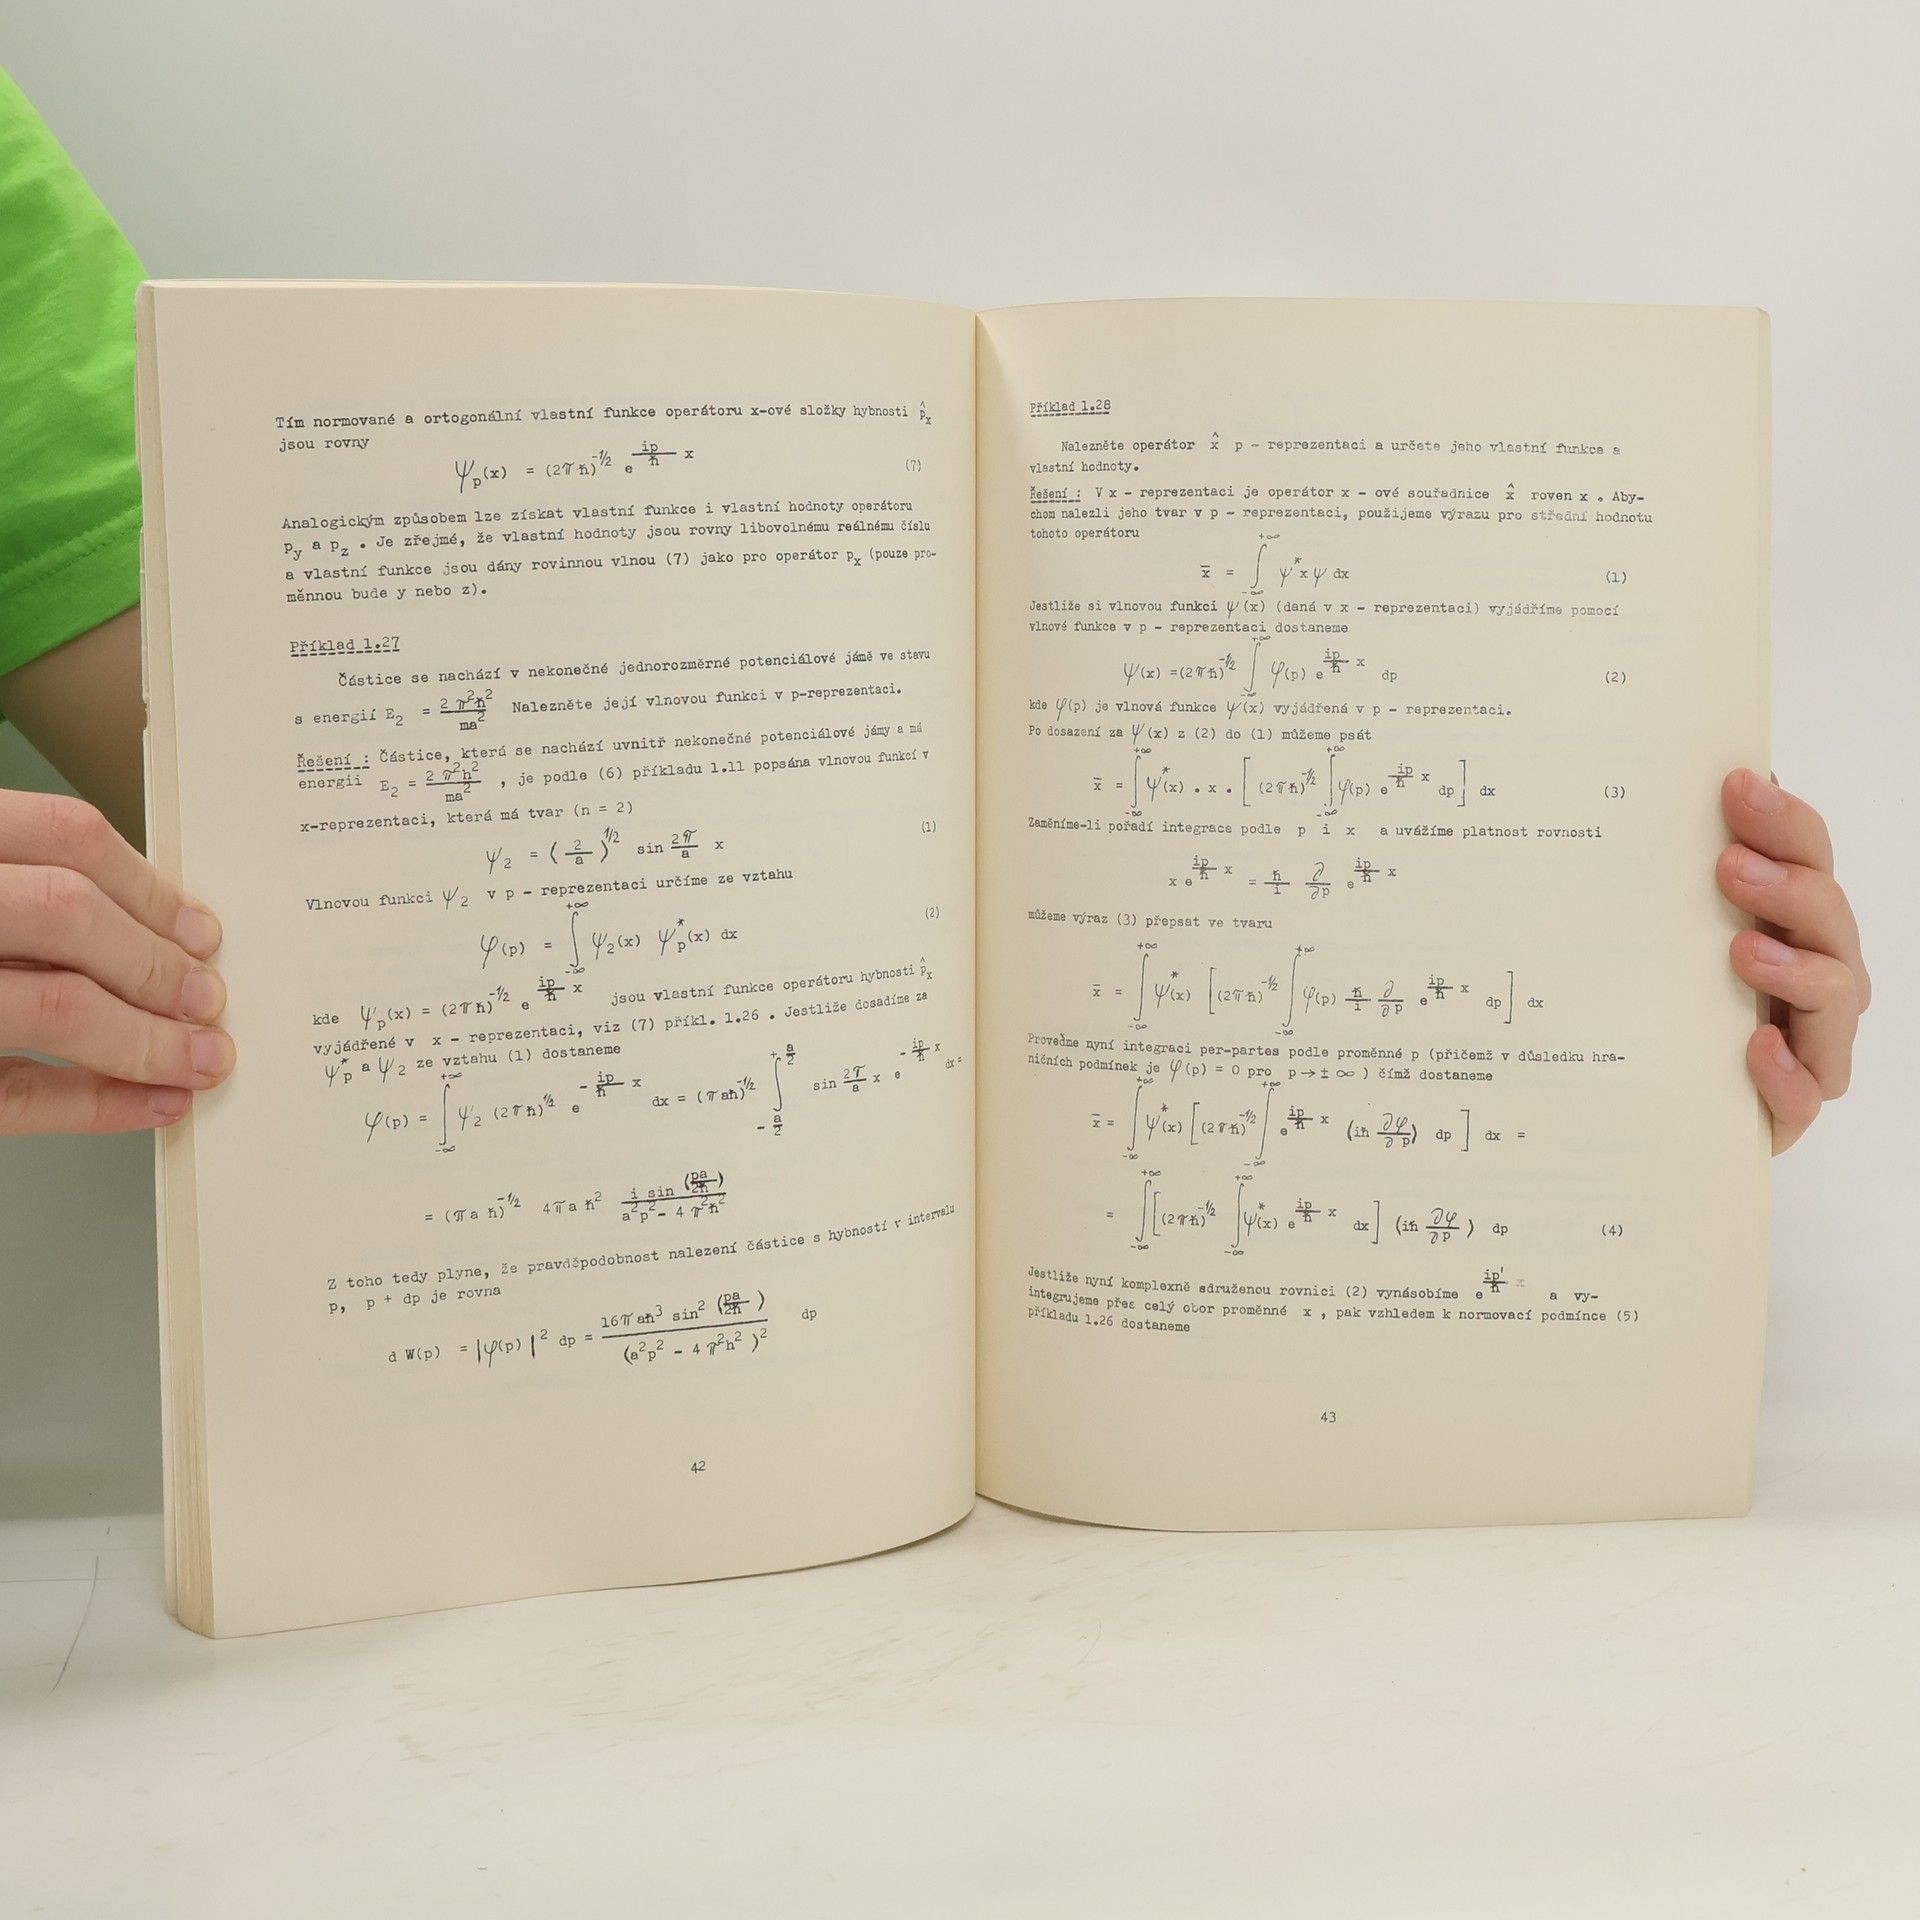 Tím normované a ortogonální vlastní funkce operátoru x-ové složky hybnosti p̂ₓ
jsou rovny
ψ_p(x) = (2πħ)^(-1/2) e^((ip/ħ) x) (7)
Analogickým způsobem lze získat vlastní funkce i vlastní hodnoty operátoru
p_y a p_z . Je zřejmé, že vlastní hodnoty jsou rovny libovolnému reálnému číslu
a vlastní funkce jsou dány rovinnou vlnou (7) jako pro operátor pₓ (pouze pro-
měnnou bude y nebo z).
Příklad 1.27
Částice se nachází v nekonečné jednorozměrné potenciálové jámě ve stavu
s energií E₂ = 2π²ħ²/ma² Nalezněte její vlnovou funkci v p-reprezentaci.
Řešení : Částice, která se nachází uvnitř nekonečné potenciálové jámy a má
energii E₂ = 2π²ħ²/ma² , je podle (6) příkladu 1.11 popsána vlnovou funkcí v
x-reprezentaci, která má tvar (n = 2)
ψ₂ = (2/a)^(1/2) sin 2π/a x (1)
Vlnovou funkci ψ₂ v p - reprezentaci určíme ze vztahu
φ(p) = ∫_{-∞}^{+∞} ψ₂(x) ψ*_p(x) dx (2)
kde ψ_p(x) = (2πħ)^(-1/2) e^((ip/ħ) x) jsou vlastní funkce operátoru hybnosti p̂ₓ
vyjádřené v x - reprezentaci, viz (7) příkl. 1.26 . Jestliže dosadíme za
ψ*_p a ψ₂ ze vztahu (1) dostaneme
φ(p) = ∫_{-∞}^{+∞} ψ₂ (2πħ)^(1/2) e^(-(ip/ħ) x) dx = (πaħ)^(-1/2) ∫_{-a/2}^{+a/2} sin 2π/a x e^(-(ip/ħ) x) dx =
= (πaħ)^(-1/2) 4πaħ² i sin (pa/2ħ) / a²p² - 4π²ħ²
Z toho tedy plyne, že pravděpodobnost nalezení částice s hybností v intervalu
p, p + dp je rovna
d W(p) = |φ(p)|² dp = 16πaħ³ sin² (pa/2ħ) / (a²p² - 4π²ħ²)² dp
42
Příklad 1.28
Nalezněte operátor x̂ p - reprezentaci a určete jeho vlastní funkce a
vlastní hodnoty.
Řešení : V x - reprezentaci je operátor x - ové souřadnice x̂ roven x . Aby-
chom nalezli jeho tvar v p - reprezentaci, použijeme výrazu pro střední hodnotu
tohoto operátoru
x̄ = ∫_{-∞}^{+∞} ψ* x ψ dx (1)
Jestliže si vlnovou funkci ψ(x) (daná v x - reprezentaci) vyjádříme pomocí
vlnové funkce v p - reprezentaci dostaneme
ψ(x) =(2πħ)^(-1/2) ∫_{-∞}^{+∞} φ(p) e^((ip/ħ) x) dp (2)
kde φ(p) je vlnová funkce ψ(x) vyjádřená v p - reprezentaci.
Po dosazení za ψ(x) z (2) do (1) můžeme psát
x̄ = ∫_{-∞}^{+∞} ψ*(x) . x . [ (2πħ)^(-1/2) ∫_{-∞}^{+∞} φ(p) e^((ip/ħ) x) dp ] dx (3)
Zaměníme-li pořadí integrace podle p i x a uvážíme platnost rovnosti
x e^((ip/ħ) x) = ħ/i ∂/∂p e^((ip/ħ) x)
můžeme výraz (3) přepsat ve tvaru
x̄ = ∫_{-∞}^{+∞} ψ*(x) [(2πħ)^(-1/2) ∫_{-∞}^{+∞} φ(p) ħ/i ∂/∂p e^((ip/ħ) x) dp ] dx
Proveďme nyní integraci per-partes podle proměnné p (přičemž v důsledku hra-
ničních podmínek je φ(p) = 0 pro p → ± ∞ ) čímž dostaneme
x̄ = ∫_{-∞}^{+∞} ψ*(x) [(2πħ)^(-1/2) ∫_{-∞}^{+∞} e^((ip/ħ) x) (iħ ∂φ/∂p) dp ] dx =
= ∫_{-∞}^{+∞} [(2πħ)^(-1/2) ∫_{-∞}^{+∞} ψ*(x) e^((ip/ħ) x) dx ] (iħ ∂φ/∂p ) dp (4)
Jestliže nyní komplexně sdruženou rovnici (2) vynásobíme e^((ip'/ħ) x) a vy-
integrujeme přes celý obor proměnné x , pak vzhledem k normovací podmínce (5)
příkladu 1.26 dostaneme
43